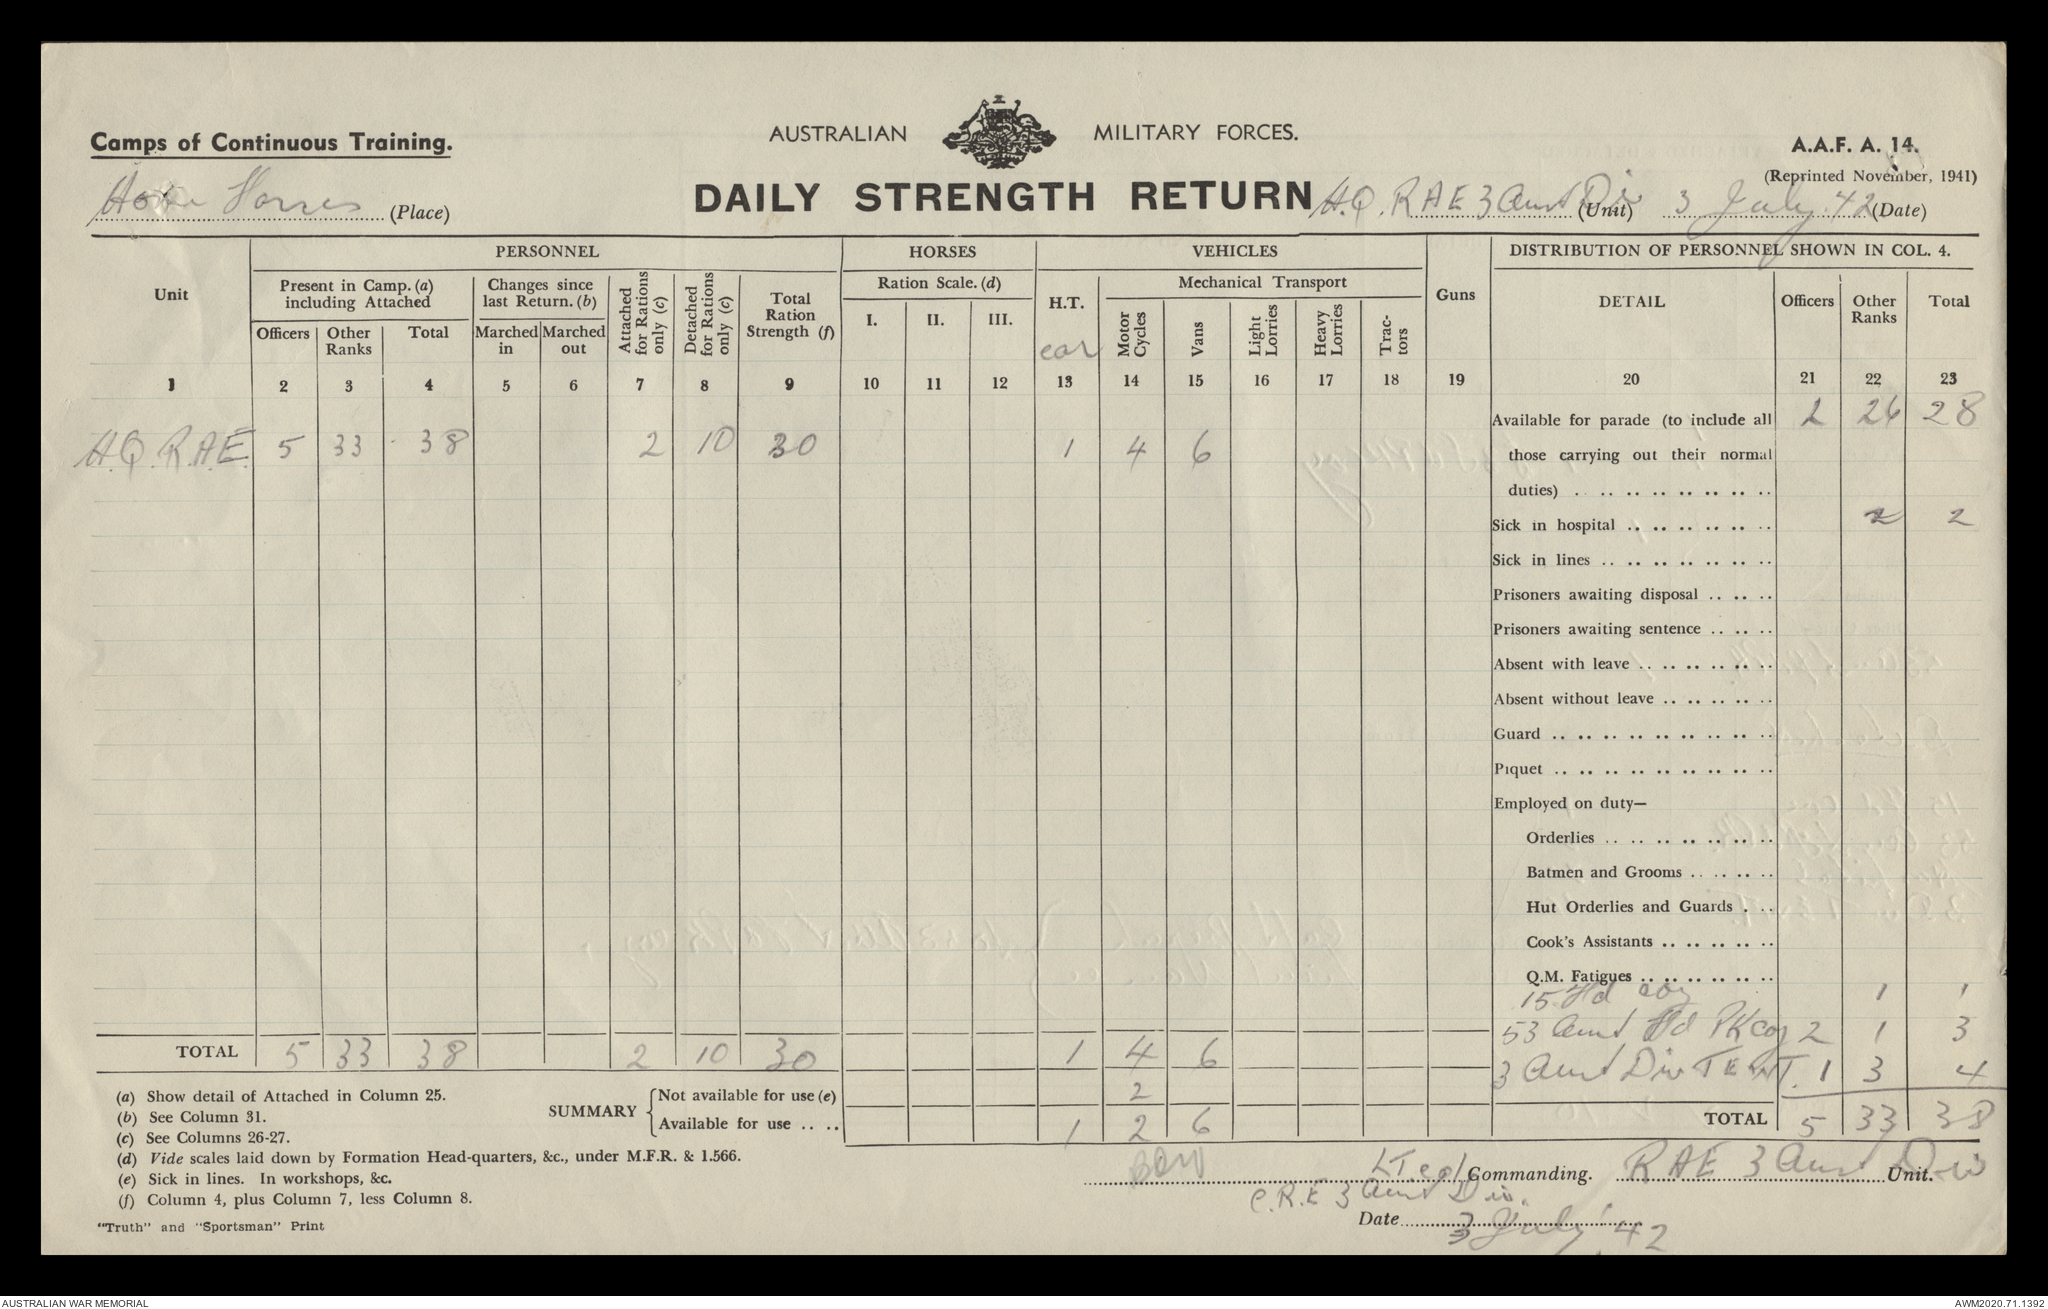 Camps of Continuous Training.
AUSTRALIAN MILITARY FORCES.
A.A.F. A. 14.
(Reprinted November, 1941)
(Place)
DAILY STRENGTH RETURN
H.Q. R.A.E 3 Aust Div (Unit) 3 July 42 (Date)
PERSONNEL HORSES VEHICLES DISTRIBUTION OF PERSONNEL SHOWN IN COL. 4.
Unit
Present in Camp. (a) including Attached
Changes since last Return. (b)
Attached for Rations only (c)
Detached for Rations only (c)
Total Ration Strength (f)
Ration Scale. (d)
H.T.
Mechanical Transport
Guns
DETAIL
Officers
Other Ranks
Total
Officers
Other Ranks
Total
Marched in
Marched out
I. II. III.
car
Motor Cycles
Vans
Light Lorries
Heavy Lorries
Trac-tors
1 2 3 4 5 6 7 8 9 10 11 12 13 14 15 16 17 18 19 20 21 22 23
H.Q. R.A.E. 5 33 38 2 10 30 1 4 6
Available for parade (to include all 2 26 28
those carrying out their normal
duties) . .. .. .. .. .. .. ..
Sick in hospital .. .. .. .. .. .. 2 2
Sick in lines .. .. .. .. .. .. ..
Prisoners awaiting disposal .. .. ..
Prisoners awaiting sentence .. .. ..
Absent with leave .. .. .. .. .. ..
Absent without leave .. .. .. .. ..
Guard .. .. .. .. .. .. .. .. ..
Piquet .. .. .. .. .. .. .. .. ..
Employed on duty—
Orderlies .. .. .. .. .. .. ..
Batmen and Grooms .. .. .. ..
Hut Orderlies and Guards . ..
Cook's Assistants .. .. .. .. ..
Q.M. Fatigues .. .. .. .. .. ..
15 Fd coy 1 1
53 Aust Fd PK coy 2 1 3
3 Aust Div 1 3 4
TOTAL 5 33 38 2 10 30 1 4 6
SUMMARY
Not available for use (e) 2
Available for use .. .. 1 2 6
TOTAL 5 33 38
(a) Show detail of Attached in Column 25.
(b) See Column 31.
(c) See Columns 26-27.
(d) Vide scales laid down by Formation Head-quarters, &c., under M.F.R. & 1.566.
(e) Sick in lines. In workshops, &c.
(f) Column 4, plus Column 7, less Column 8.
"Truth" and "Sportsman" Print
Lt Col Commanding. RAE 3 Aust Div Unit.
C.R.E 3 Aust Div.
Date 3 July 42
AUSTRALIAN WAR MEMORIAL
AWM2020.71.1392